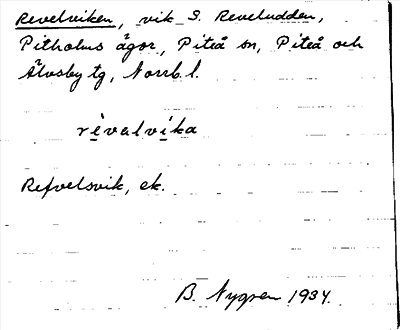 Revelviken, vik S. Reveludden,
Pitholms ägor, Piteå sn, Piteå och
Älvsby tg, Norrb. l.
rèvalvìka
Refvelsvik, ek.
B. Nygren 1934.